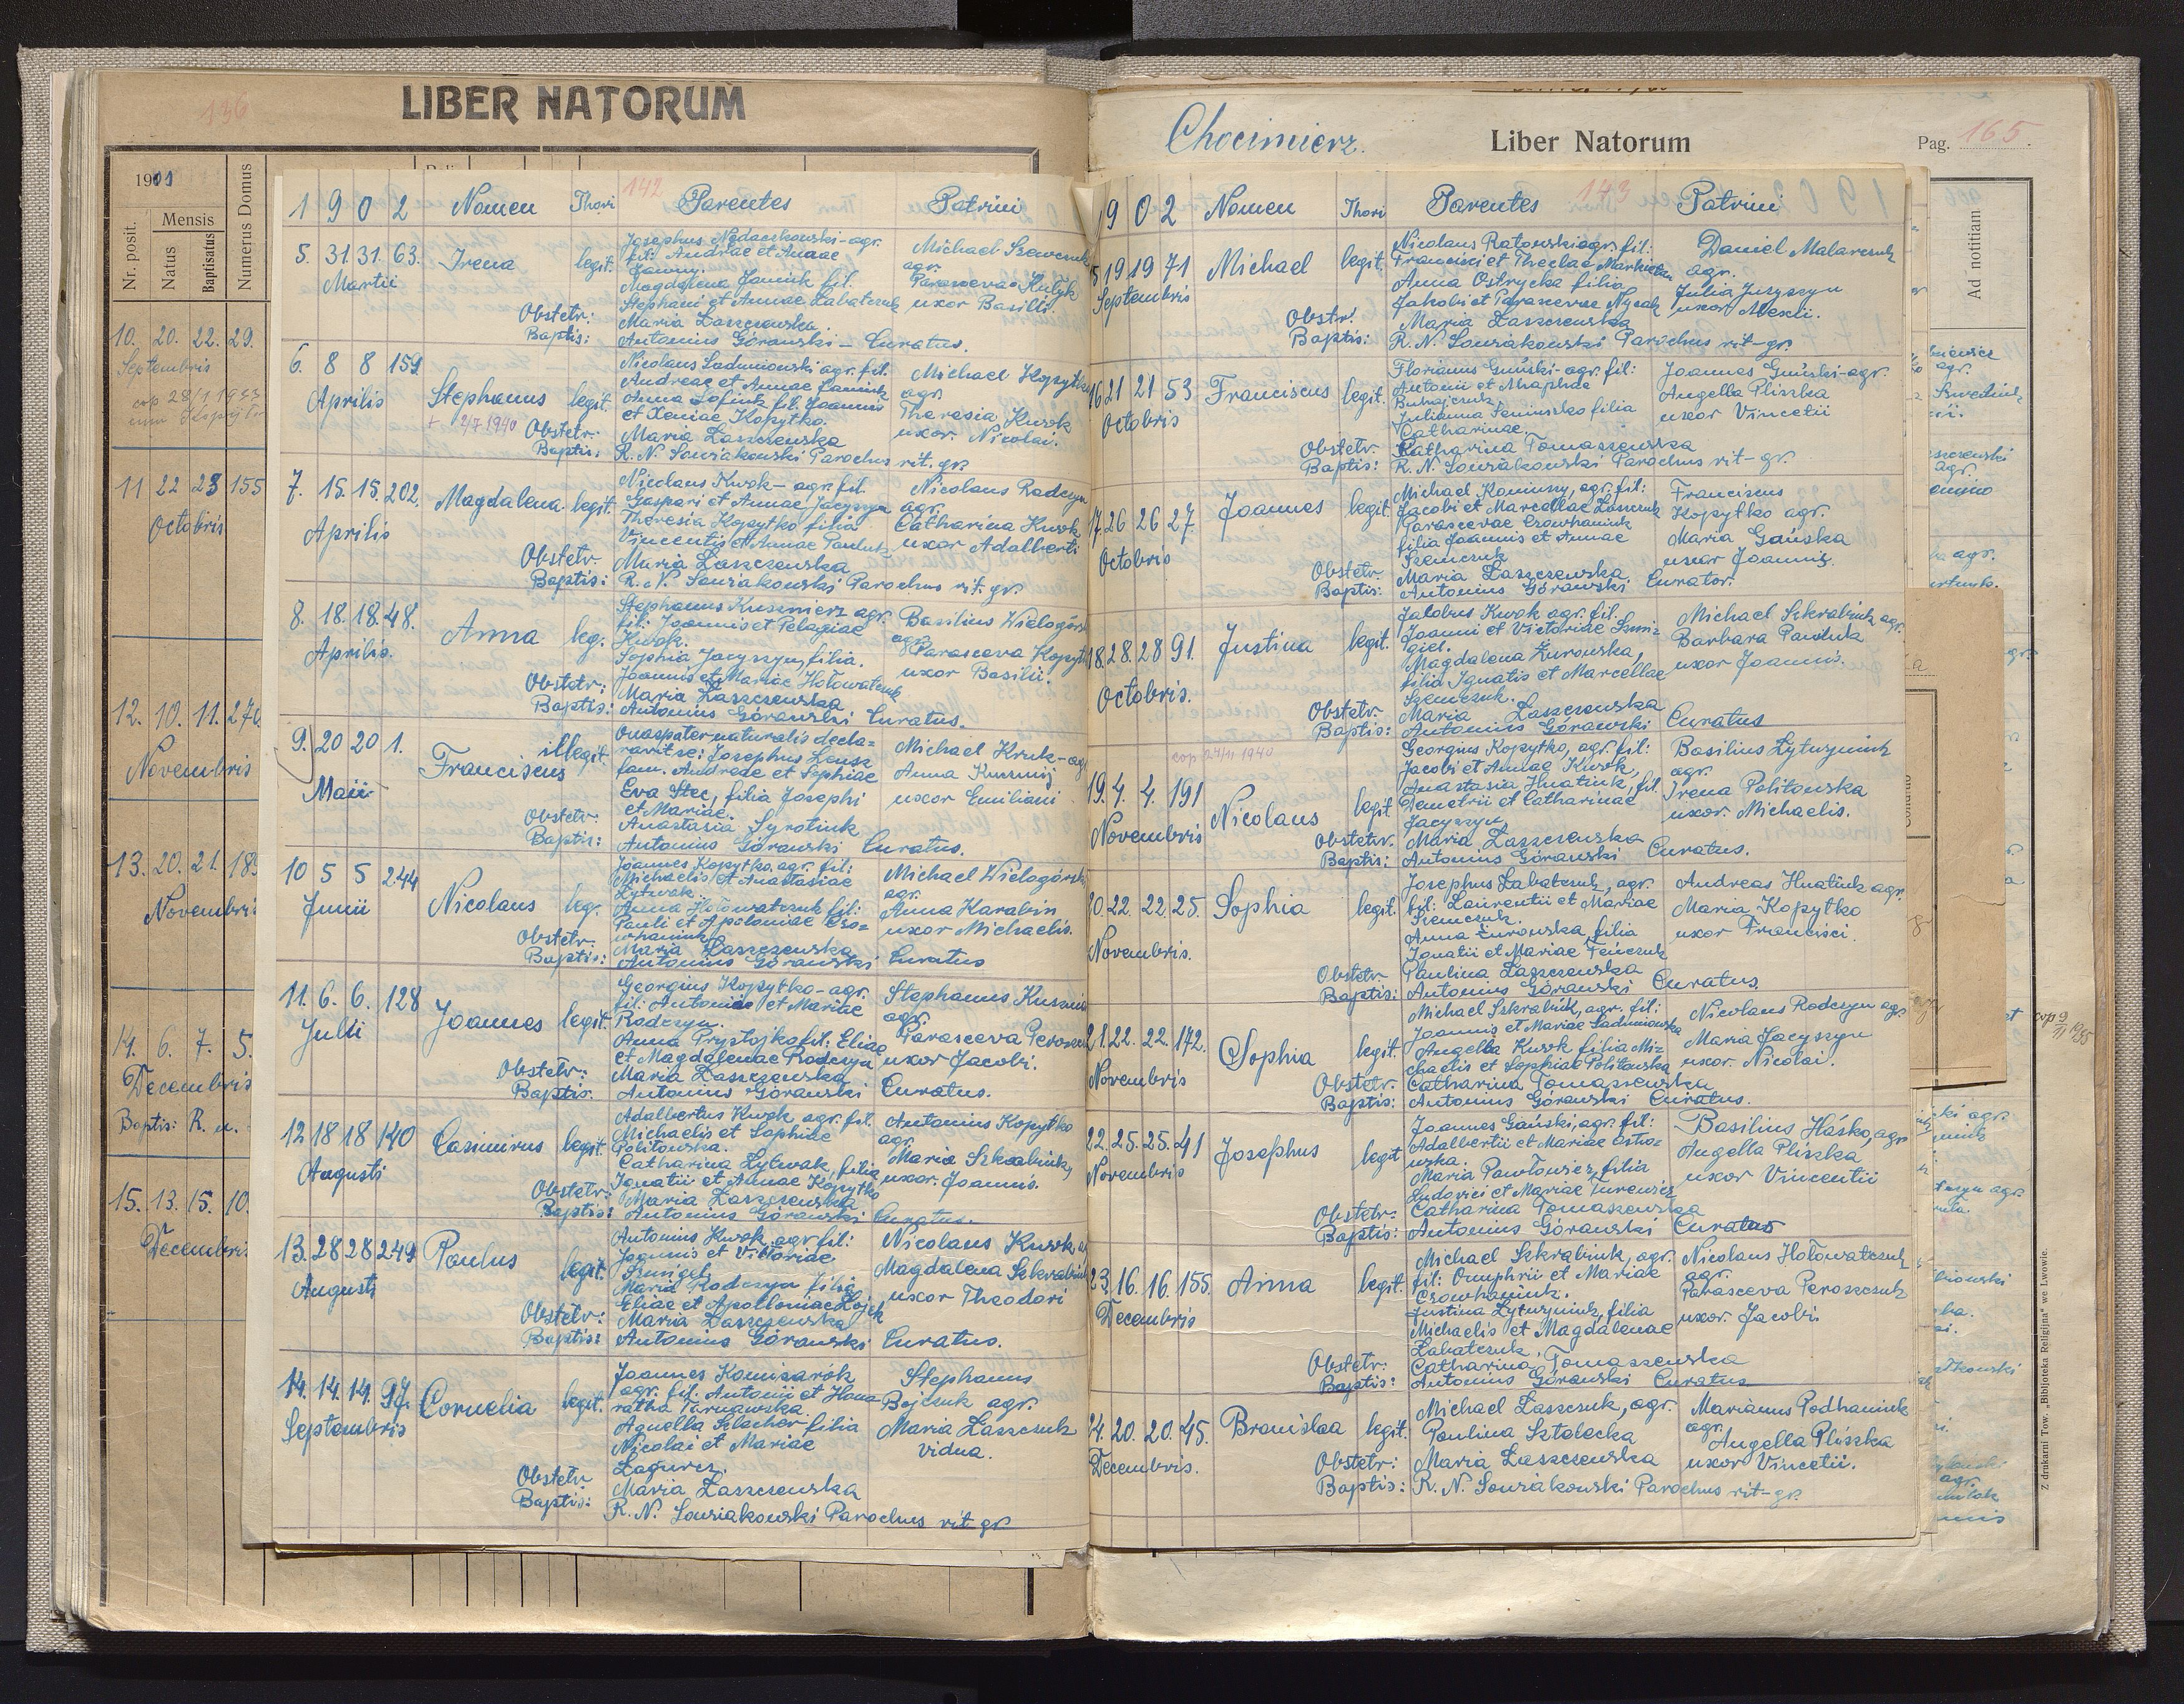 136
LIBER NATORUM
1901
Nr. posit.
Mensis
Natus
Baptisatus
Numerus Domus
10. 20. 22. 29.
Septembris
11 22 23 155
Octobris
12. 10. 11. 276
Novembris
13. 20. 21. 189
Novembris
14. 6. 7. 5.
Decembris
Baptis: R. n.
15. 13. 15. 10.
Decembris
142
1 9 0 2 Nomen Thori Parentes Patrini
5. 31. 31. 63. Irena legit.
Martii
Josephus Nedaczkowski - agr.
fil: Andreae et Annae
Magdalena Janiuk fil.
Stephani et Annae Labatczuk
Michael Szewczuk
agr.
Parasceva Kulyk
uxor Basilii.
Obstetr: Maria Łaszczewska.
Baptis: Antonius Górawski - Curatus.
6. 8 8 159
Aprilis Stephanus legit.
+ 2/7 1940
Nicolaus Sadunowski agr. fil.
Andreae et Annae Janiuk
Anna Sofiuk fil. Joannis
et Xeniae Kopytko.
Michael Kopytko
agr.
Theresia Kwok
uxor. Nicolai.
Obstetr: Maria Łaszczewska
Baptis: R. N. Sowiakowski Parochus rit. gr.
7. 15. 15. 202. Magdalena legit.
Aprilis
Nicolaus Kwok - agr. fil.
Gaspari et Annae Jacyszyn
Theresia Kopytko filia
Vincentis et Annae Pauluk
Nicolaus Radczyn
agr.
Catharina Kwok
uxor Adalberti
Obstetr. Maria Łaszczewska
Baptis: R. N. Sowiakowski Parochus rit. gr.
8. 18. 18. 48. Anna leg.
Aprilis.
Stephanus Kusznierz agr.
fil: Joannis et Pelagiae
Kwok.
Sophia Jacyszyn, filia.
Joannis et Mariae Hołowatczuk
Basilius Wielogórski
agr.
Parasceva Kopytko
uxor Basilii.
Obstetr: Maria Łaszczewska
Baptis: Antonius Górawski Curatus.
9. 20 20 1. Franciscus illegit.
Maii
Qua pater naturalis decla=
ravit se: Josephus Leusz
fam. Andreae et Sophiae
Eva Stec, filia Josephi
et Mariae.
Michael Kruk - agr.
Anna Kuszmij
uxor Emiliani
Obstetr. Anastasia Syrotiuk
Baptis: Antonius Górawski Curatus.
10 5 5 244 Nicolaus leg.
Junii
Joannes Kopytko agr. fil:
Michaelis et Anastasiae
Lytwak.
Anna Hołowatczuk fil:
Pauli et Apoloniae Czo=
whaniuk
Michael Wielogórski
agr.
Anna Karabin
uxor Michaelis.
Obstetr. Maria Łaszczewska
Baptis: Antonius Górawski Curatus
11. 6. 6. 128 Joannes legit.
Julii
Georgius Kopytko - agr.
fil: Antonii et Mariae
Radczyn.
Anna Prystojko fil: Eliae
et Magdalenae Radczyn
Stephanus Kusznierz
agr.
Parasceva Peroszczuk
uxor Jacobi.
Obstetr: Maria Łaszczewska
Baptis. Antonius Górawski Curatus.
12 18 18 140 Casimirus legit.
Augusti
Adalbertus Kwok agr. fil.
Michaelis et Sophiae
Politowska.
Catharina Lytwak, filia
Ignatii et Annae Kopytko
Antonius Kopytko
agr.
Maria Szkrabiuk,
uxor. Joannis.
Obstetr: Maria Łaszczewska
Baptis: Antonius Górawski Curatus.
13. 28 28 249 Paulus legit.
Augusti
Antonius Kwok agr fil:
Joannis et Victoriae
Szmigel.
Maria Radczyn filia
Eliae et Apolloniae Łojek
Nicolaus Kwok
Magdalena Szkrabiuk
uxor Theodori
Obstetr: Maria Łaszczewska
Baptis: Antonius Górawski Curatus.
14. 14. 14. 97. Cornelia legit.
Septembris
Joannes Komisarók
agr. fil. Antonii et Hono-
ratha Tarnawska.
Aguella Szlacher filia
Nicolai et Mariae
Stephanus
Bojczuk agr.
Maria Łaszczuk
vidua.
Obstetr. Maria Łaszczewska
Baptis: R. N. Sowiakowski Parochus rit gr.
Chocimierz.
Liber Natorum
Pag. 165
143
1 9 0 2 Nomen Thori Parentes Patrini
15 19 19 71 Michael legit.
Septembris
Nicolaus Ratowski agr. fil:
Francisci et Theclae Markietan
Anna Ostrycka filia
Jakobi et Parascevae Nycak
Daniel Malarczuk
agr.
Julia Juzyszyn
uxor Alexii.
Obstr: Maria Łaszczewska
Baptis: R. N. Sowiakowski Parochus rit-gr.
16 21 21 53 Franciscus legit.
Octobris
Florianus Guński - agr. fil:
Antonii et Agaphiae
Buhajczuk
Julianna Seniuszko filia
Catharinae.
Joannes Guński - agr.
Angella Pliszka
uxor Vincetii
Obstetr. Katharina Tomaszewska
Baptis: R. N. Sowiakowski Parochus rit-gr.
17. 26 26 27. Joannes legit.
Octobris
Michael Kaminsy, agr. fil:
Jacobi et Marcellae Łaszczuk
Parascevae Czowhaniuk
filia Joannis et Annae
Szemczuk
Franciscus
Kopytko agr.
Maria Gańska
uxor Joannis.
Obstetr. Maria Łaszczewska
Baptis: Antonius Górawski Curator.
18. 28. 28 91. Justina legit.
Octobris.
Jakobus Kwok agr. fil.
Joanni et Victoriae Szmi=
giel.
Magdalena Żurowska,
filia Ignatis et Marcellae
Szemczuk.
Michael Szkrabiuk agr.
Barbara Pauluk
uxor Joannis.
Obstetr. Maria Łaszczewska
Baptis: Antonius Górawski Curatus
cop 24/11 1940
19. 4. 4. 191 Nicolaus legit
Novembris
Georgius Kopytko, agr. fil:
Jacobi et Annae Kwok,
Anastasia Hnatiuk, fil.
Demetrii et Catharinae
Jacyszyn
Basilius Lytwyniuk
agr.
Irena Politowska
uxor. Michaelis.
Obstetr. Maria Łaszczewska
Baptis: Antonius Górawski Curatus.
20. 22. 22. 25. Sophia legit.
Novembris.
Josephus Labatczuk, agr.
fil: Laurentii et Mariae
Szemczuk.
Anna Żurowska filia
Ignatii et Mariae Feńczuk
Andreas Hnatiuk agr.
Maria Kopytko
uxor Francisci.
Obstetr Paulina Łaszczewska
Baptis: Antonius Górawski Curatus.
21. 22. 22. 142. Sophia legit.
Novembris
Michael Szkrabiuk, agr. fil:
Joannis et Mariae Sadunowska
Angella Kwok filia Mi=
chaelis et Sophiae Politowska
Nicolaus Radczyn agr
Maria Jacyszyn
uxor. Nicolai.
Obstetr. Catharina Tomaszewska
Baptis: Antonius Górawski Curatus.
22. 25. 25. 41 Josephus legit
Novembris
Joannes Gański, agr. fil:
Adalbertii et Mariae Ostro=
wska.
Maria Pawłowicz, filia
Ludovici et Mariae Turewicz
Basilius Háśko, agr
Angella Pliszka
uxor Vincentii
Obstetr: Catharina Tomaszewska
Baptis: Antonius Górawski Curatus
23. 16. 16. 155. Anna legit.
Decembris
Michael Szkrabiuk, agr.
fil: Onuphrii et Mariae
Czowhaniuk.
Justina Lytwyniuk, filia
Michaelis et Magdalenae
Labatczuk.
Nicolaus Hołowatczuk
agr.
Parasceva Peroszczuk
uxor. Jacobi
Obstetr: Catharina Tomaszewska
Baptis: Antonius Górawski Curatus
24. 20. 20. 45. Branislaa legit.
Decembris.
Michael Łaszczuk, agr.
Paulina Sztolecka
Marianus Podhaniuk
agr.
Angella Pliszka
uxor Vincetii.
Obstetr: Maria Łaszczewska
Baptis: R. N. Sowiakowski Parochus rit-gr.
Ad notitiam
cop 9/II 1985
Z drukarni Tow. „Bibljoteka Religijna" we Lwowie.